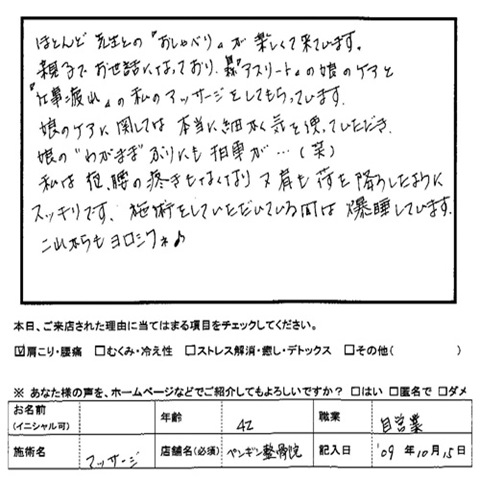 ほとんど 先生との『おしゃべり』が 楽しくて来ています。
親子でお世話になっており、『アスリート』の娘のケアと
『仕事疲れ』の私のマッサージをしてもらっています。
娘のケアに関しては 本当に細かく気を使っていただき、
娘の"わがまま"ぶりにも拍車が…(笑)
私は 腰の疼きもなくなり 又肩も荷を降ろしたように
スッキリです、施術をしていただいている間は 爆睡しています。
これからもヨロシクネ♪
本日、ご来店された理由に当てはまる項目をチェックしてください。
☑肩こり・腰痛 □むくみ・冷え性 □ストレス解消・癒し・デトックス □その他( )
※ あなた様の声を、ホームページなどでご紹介してもよろしいですか？ □はい □匿名で □ダメ
お名前 (イニシャル可) 年齢 42 職業 自営業
施術名 マッサージ 店舗名(必須) ペンギン整骨院 記入日 '09 年10月15日